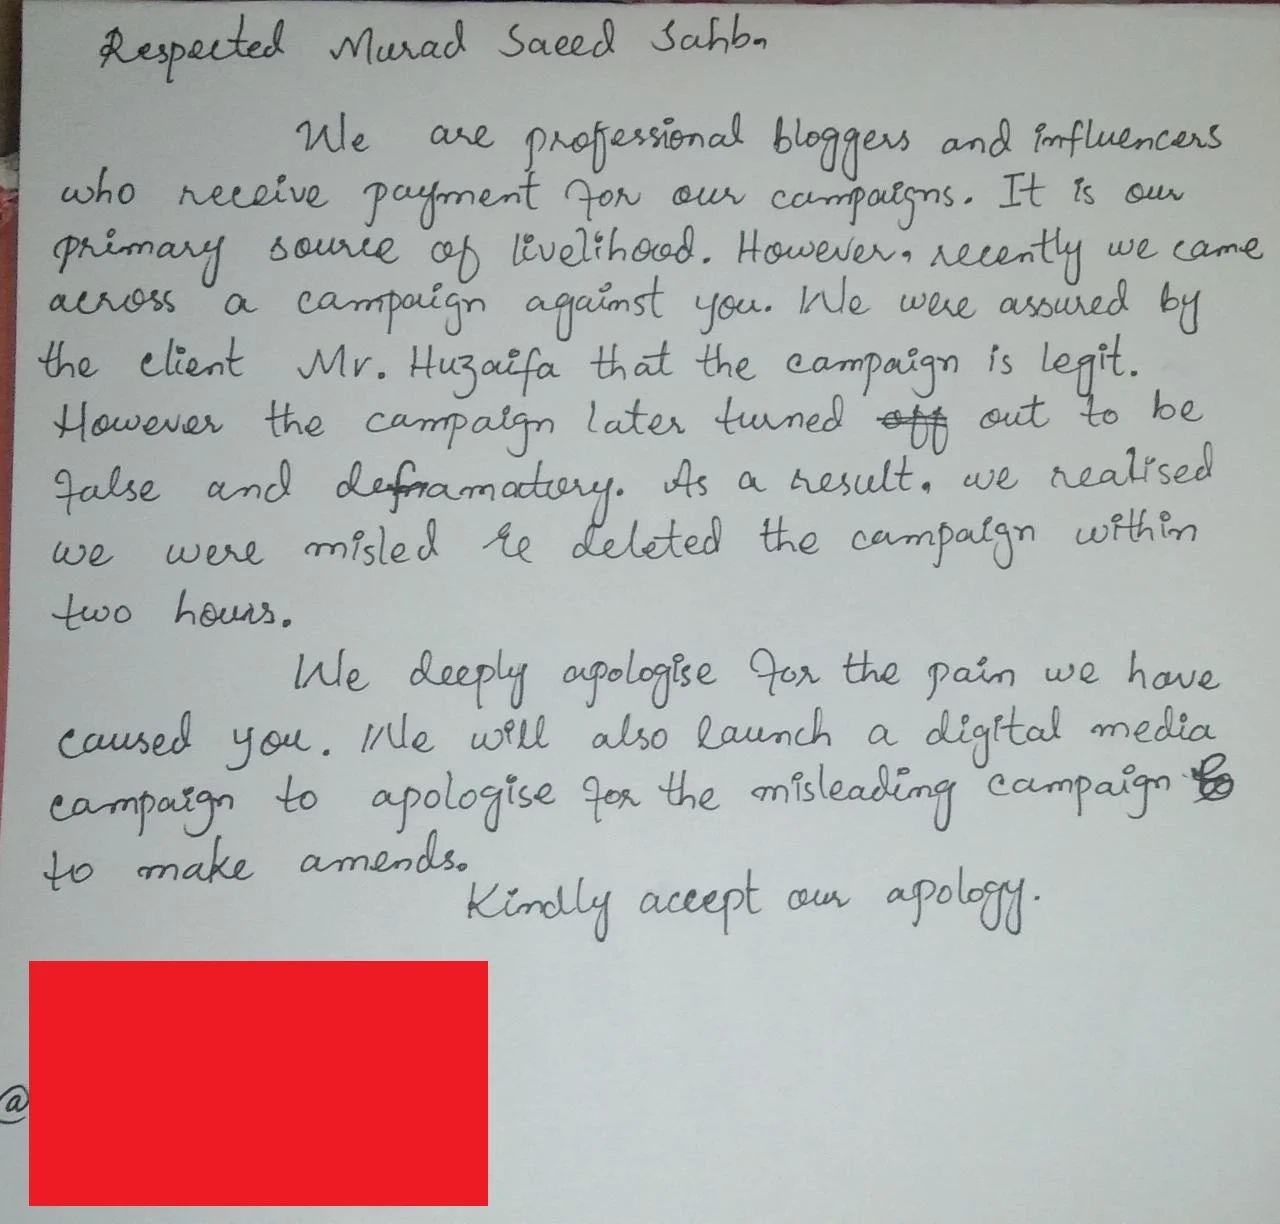 Respected Murad Saeed Sahb,
We are professional bloggers and influencers
who receive payment for our campaigns. It is our
primary source of livelihood. However, recently we came
across a campaign against you. We were assured by
the client Mr. Huzaifa that the campaign is legit.
However the campaign later turned off out to be
false and defamatory. As a result, we realised
we were misled & deleted the campaign within
two hours.
We deeply apologise for the pain we have
caused you. We will also launch a digital media
campaign to apologise for the misleading campaign
to make amends.
Kindly accept our apology.
@